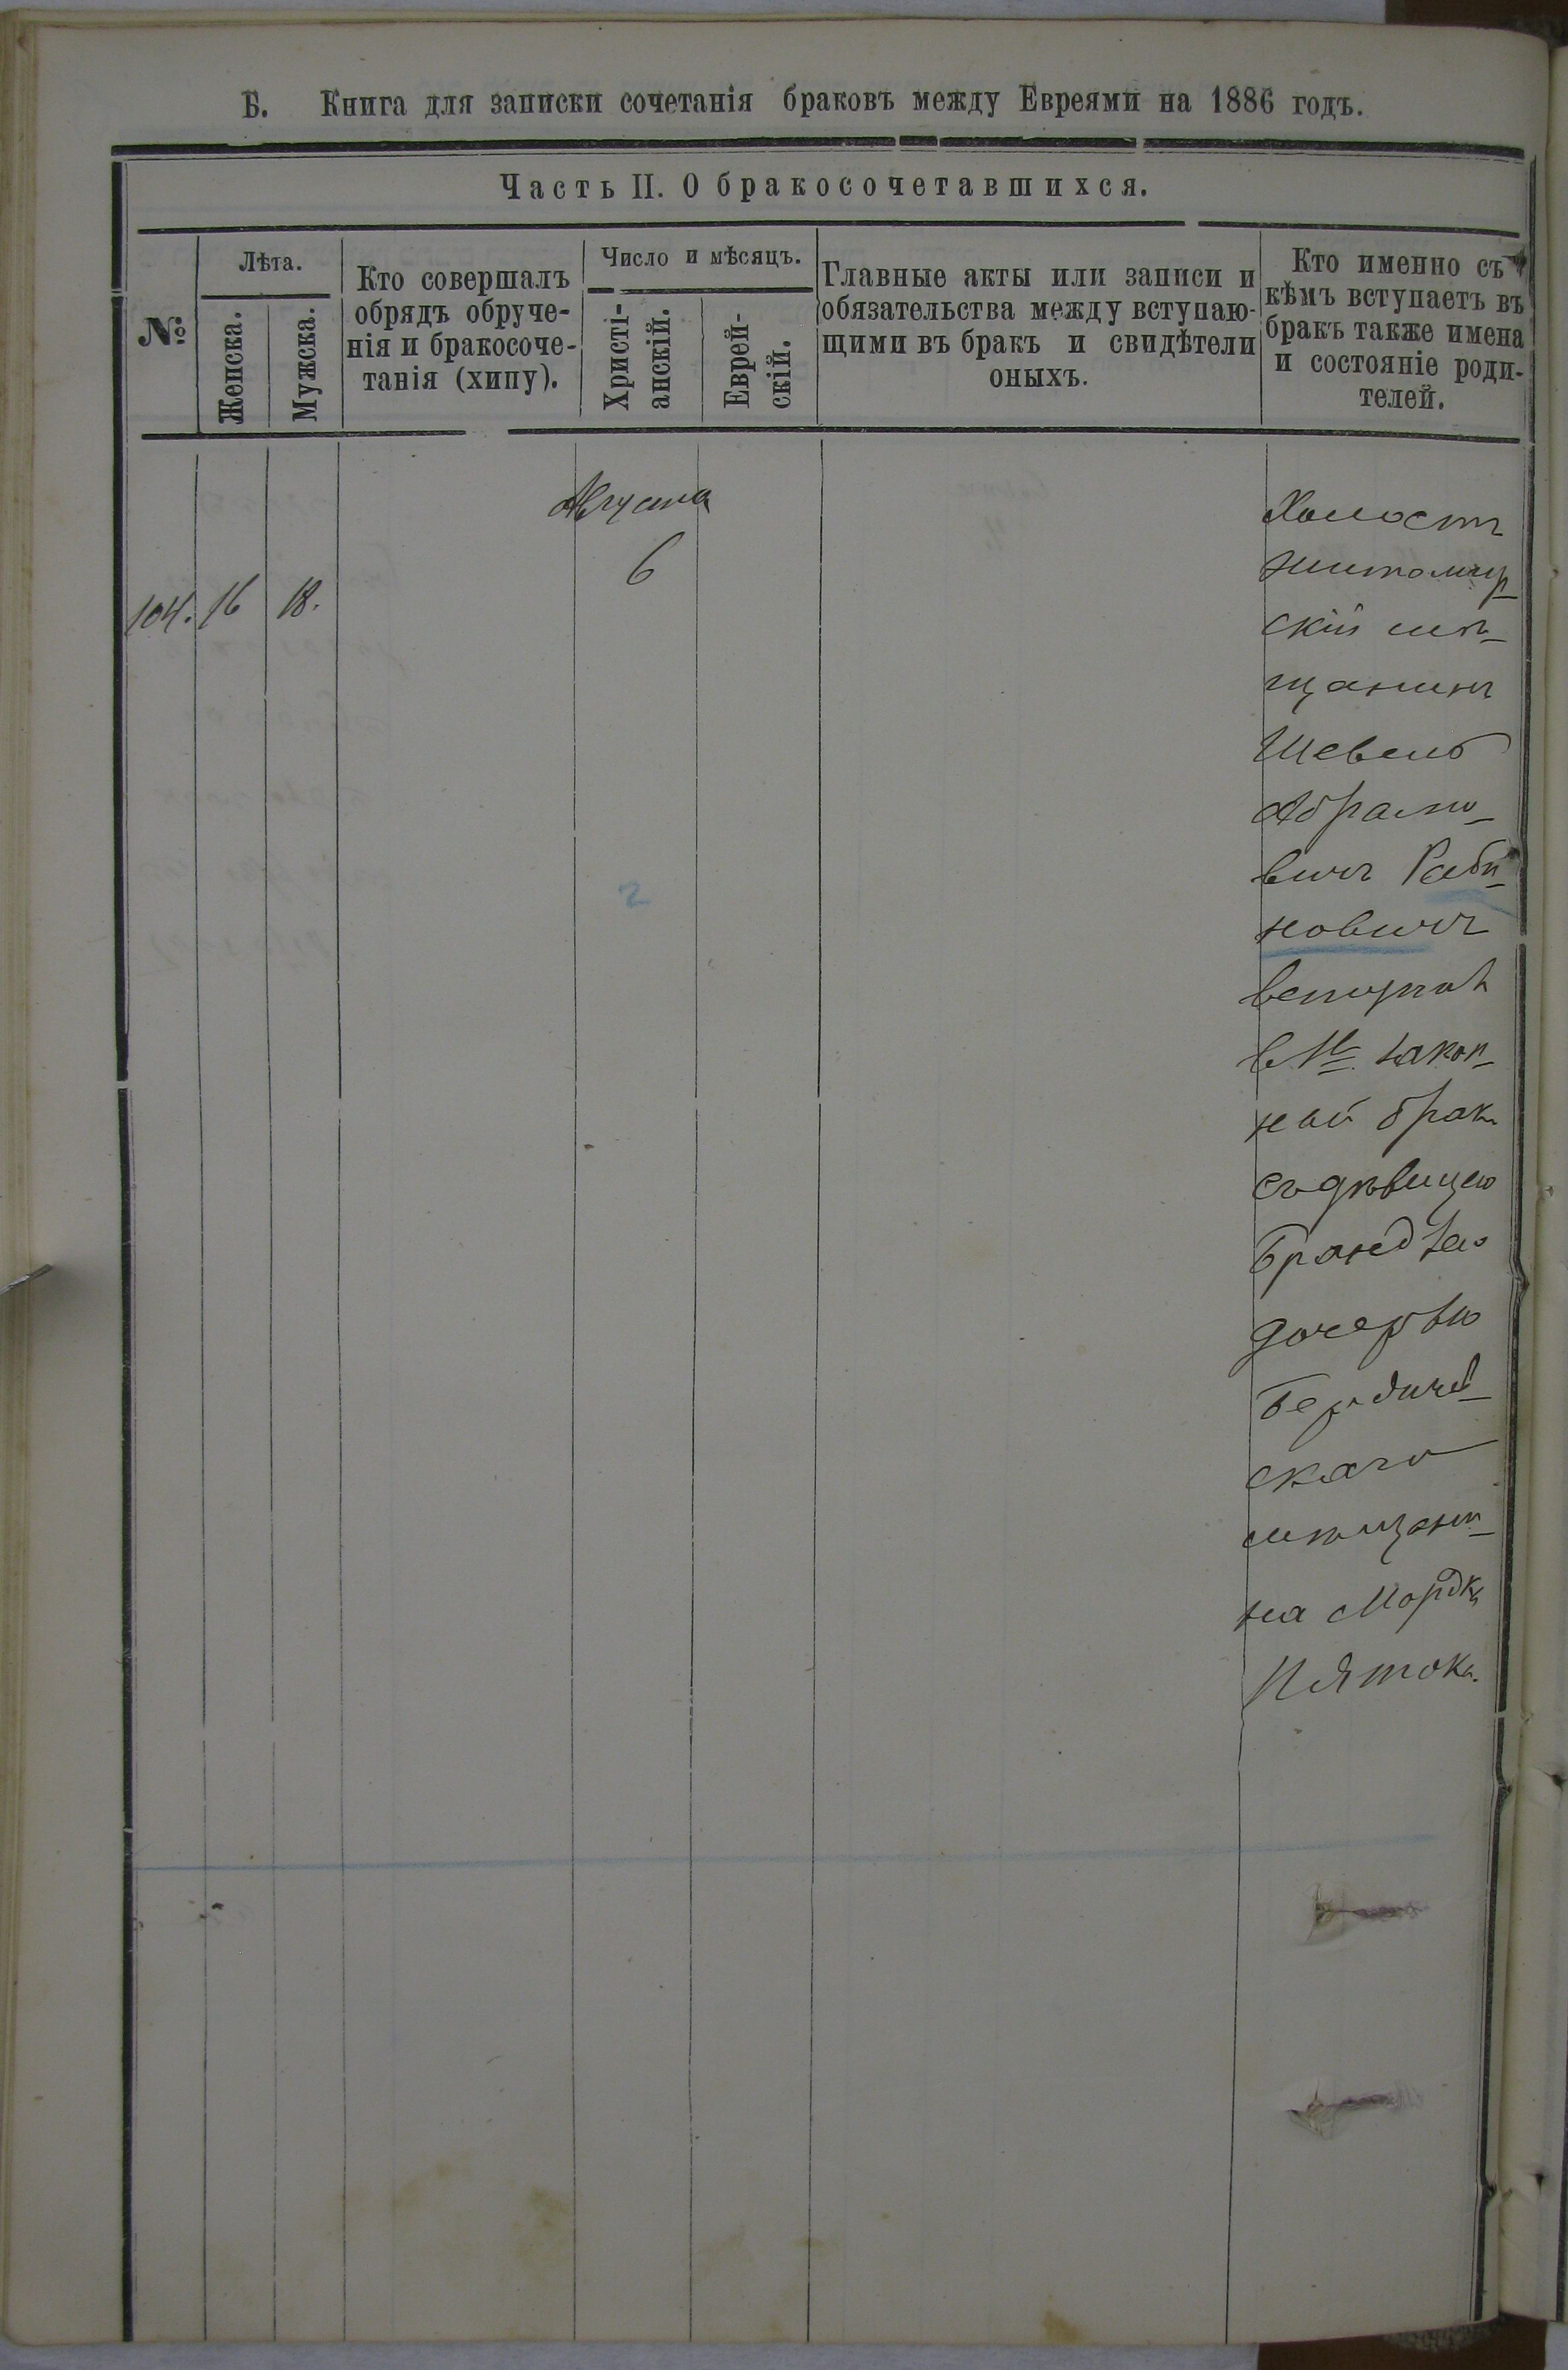 Б. Книга для записки сочетанія браковъ между Евреями на 1886 годъ.
Часть II. О бракосочетавшихся.
№
Лѣта.
Женска.
Мужска.
Кто совершалъ
обрядъ обруче-
нія и бракосоче-
танія (хипу).
Число и мѣсяцъ.
Христі-
анскій.
Еврей-
скій.
Главные акты или записи и
обязательства между вступаю-
щими въ бракъ и свидѣтели
оныхъ.
Кто именно съ
кѣмъ вступаетъ въ
бракъ также имена
и состояніе роди-
телей.
Августа
6
104. 16 18.
2
Холостъ
житомир-
скій мѣ-
щанинъ
Шевель
Абрамо-
вичъ Раби-
новичъ
вступилъ
въ 1й закон-
ный бракъ
съ дѣвицею
Брандзею
дочерью
Бердичев-
скаго
мѣщани-
на Мордка
Пятока.